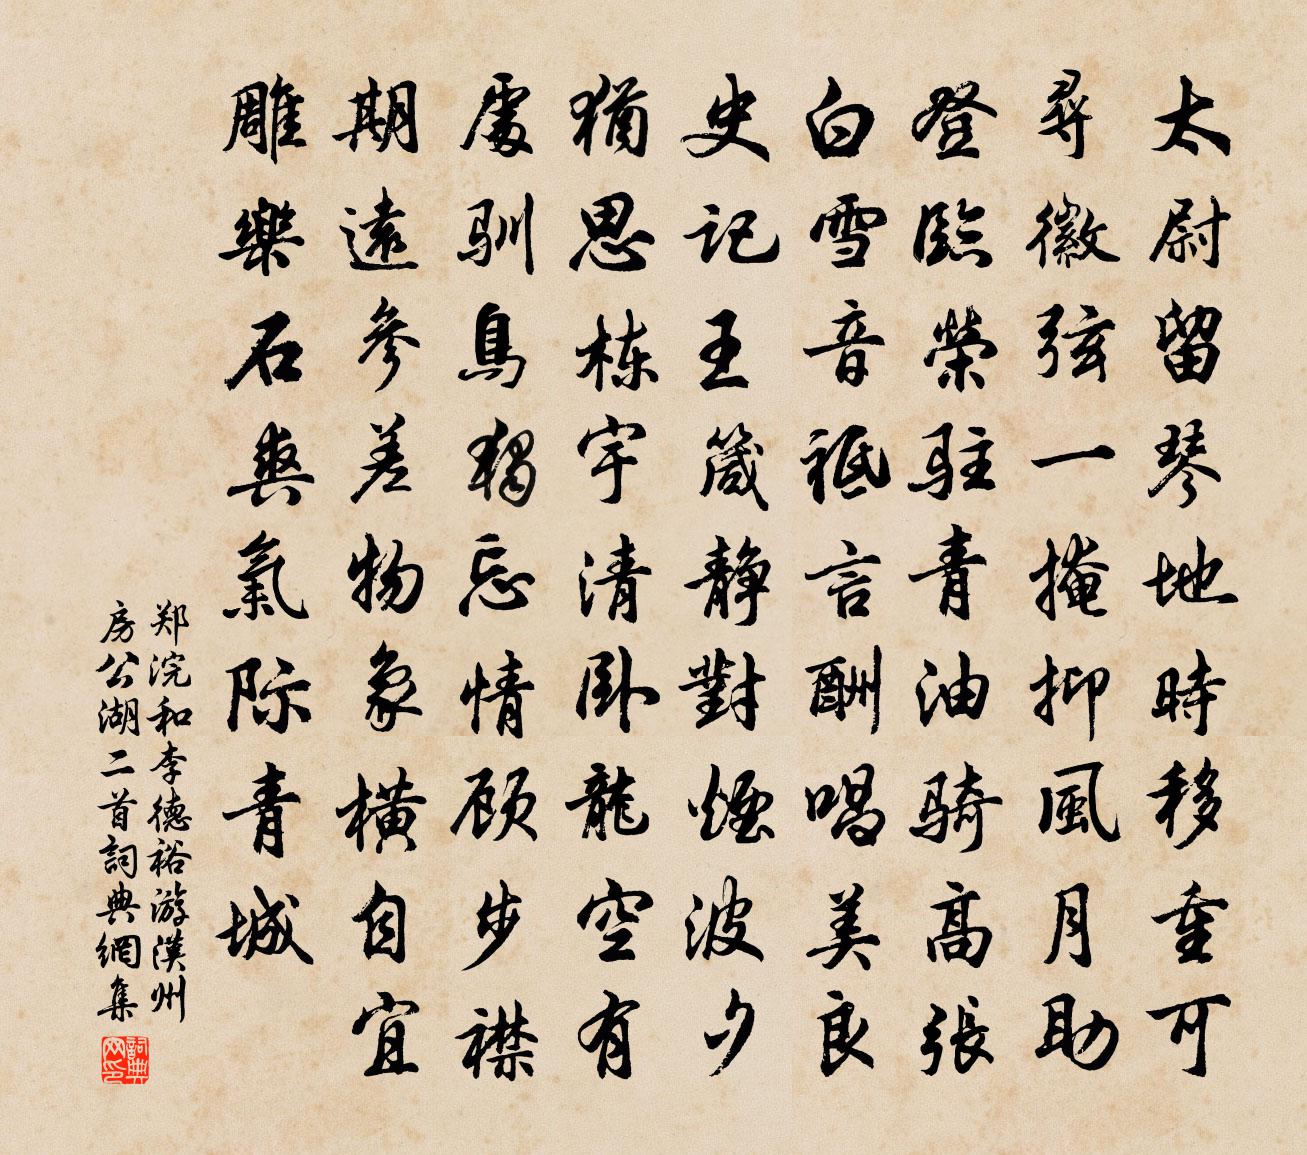 太尉留琴地時移重可
尋徽弦一掩抑風月助
登臨榮駐青油騎高張
白雪音祗言酬唱美良
史記王箴靜對煙波夕
猶思栋宇清卧龍空有
處馴鳥獨忘情顾步襟
期遠參差物象橫自宜
雕樂石爽氣际青城
郑浣和李德裕游漢州
房公湖二首詞典網集
詞典网印